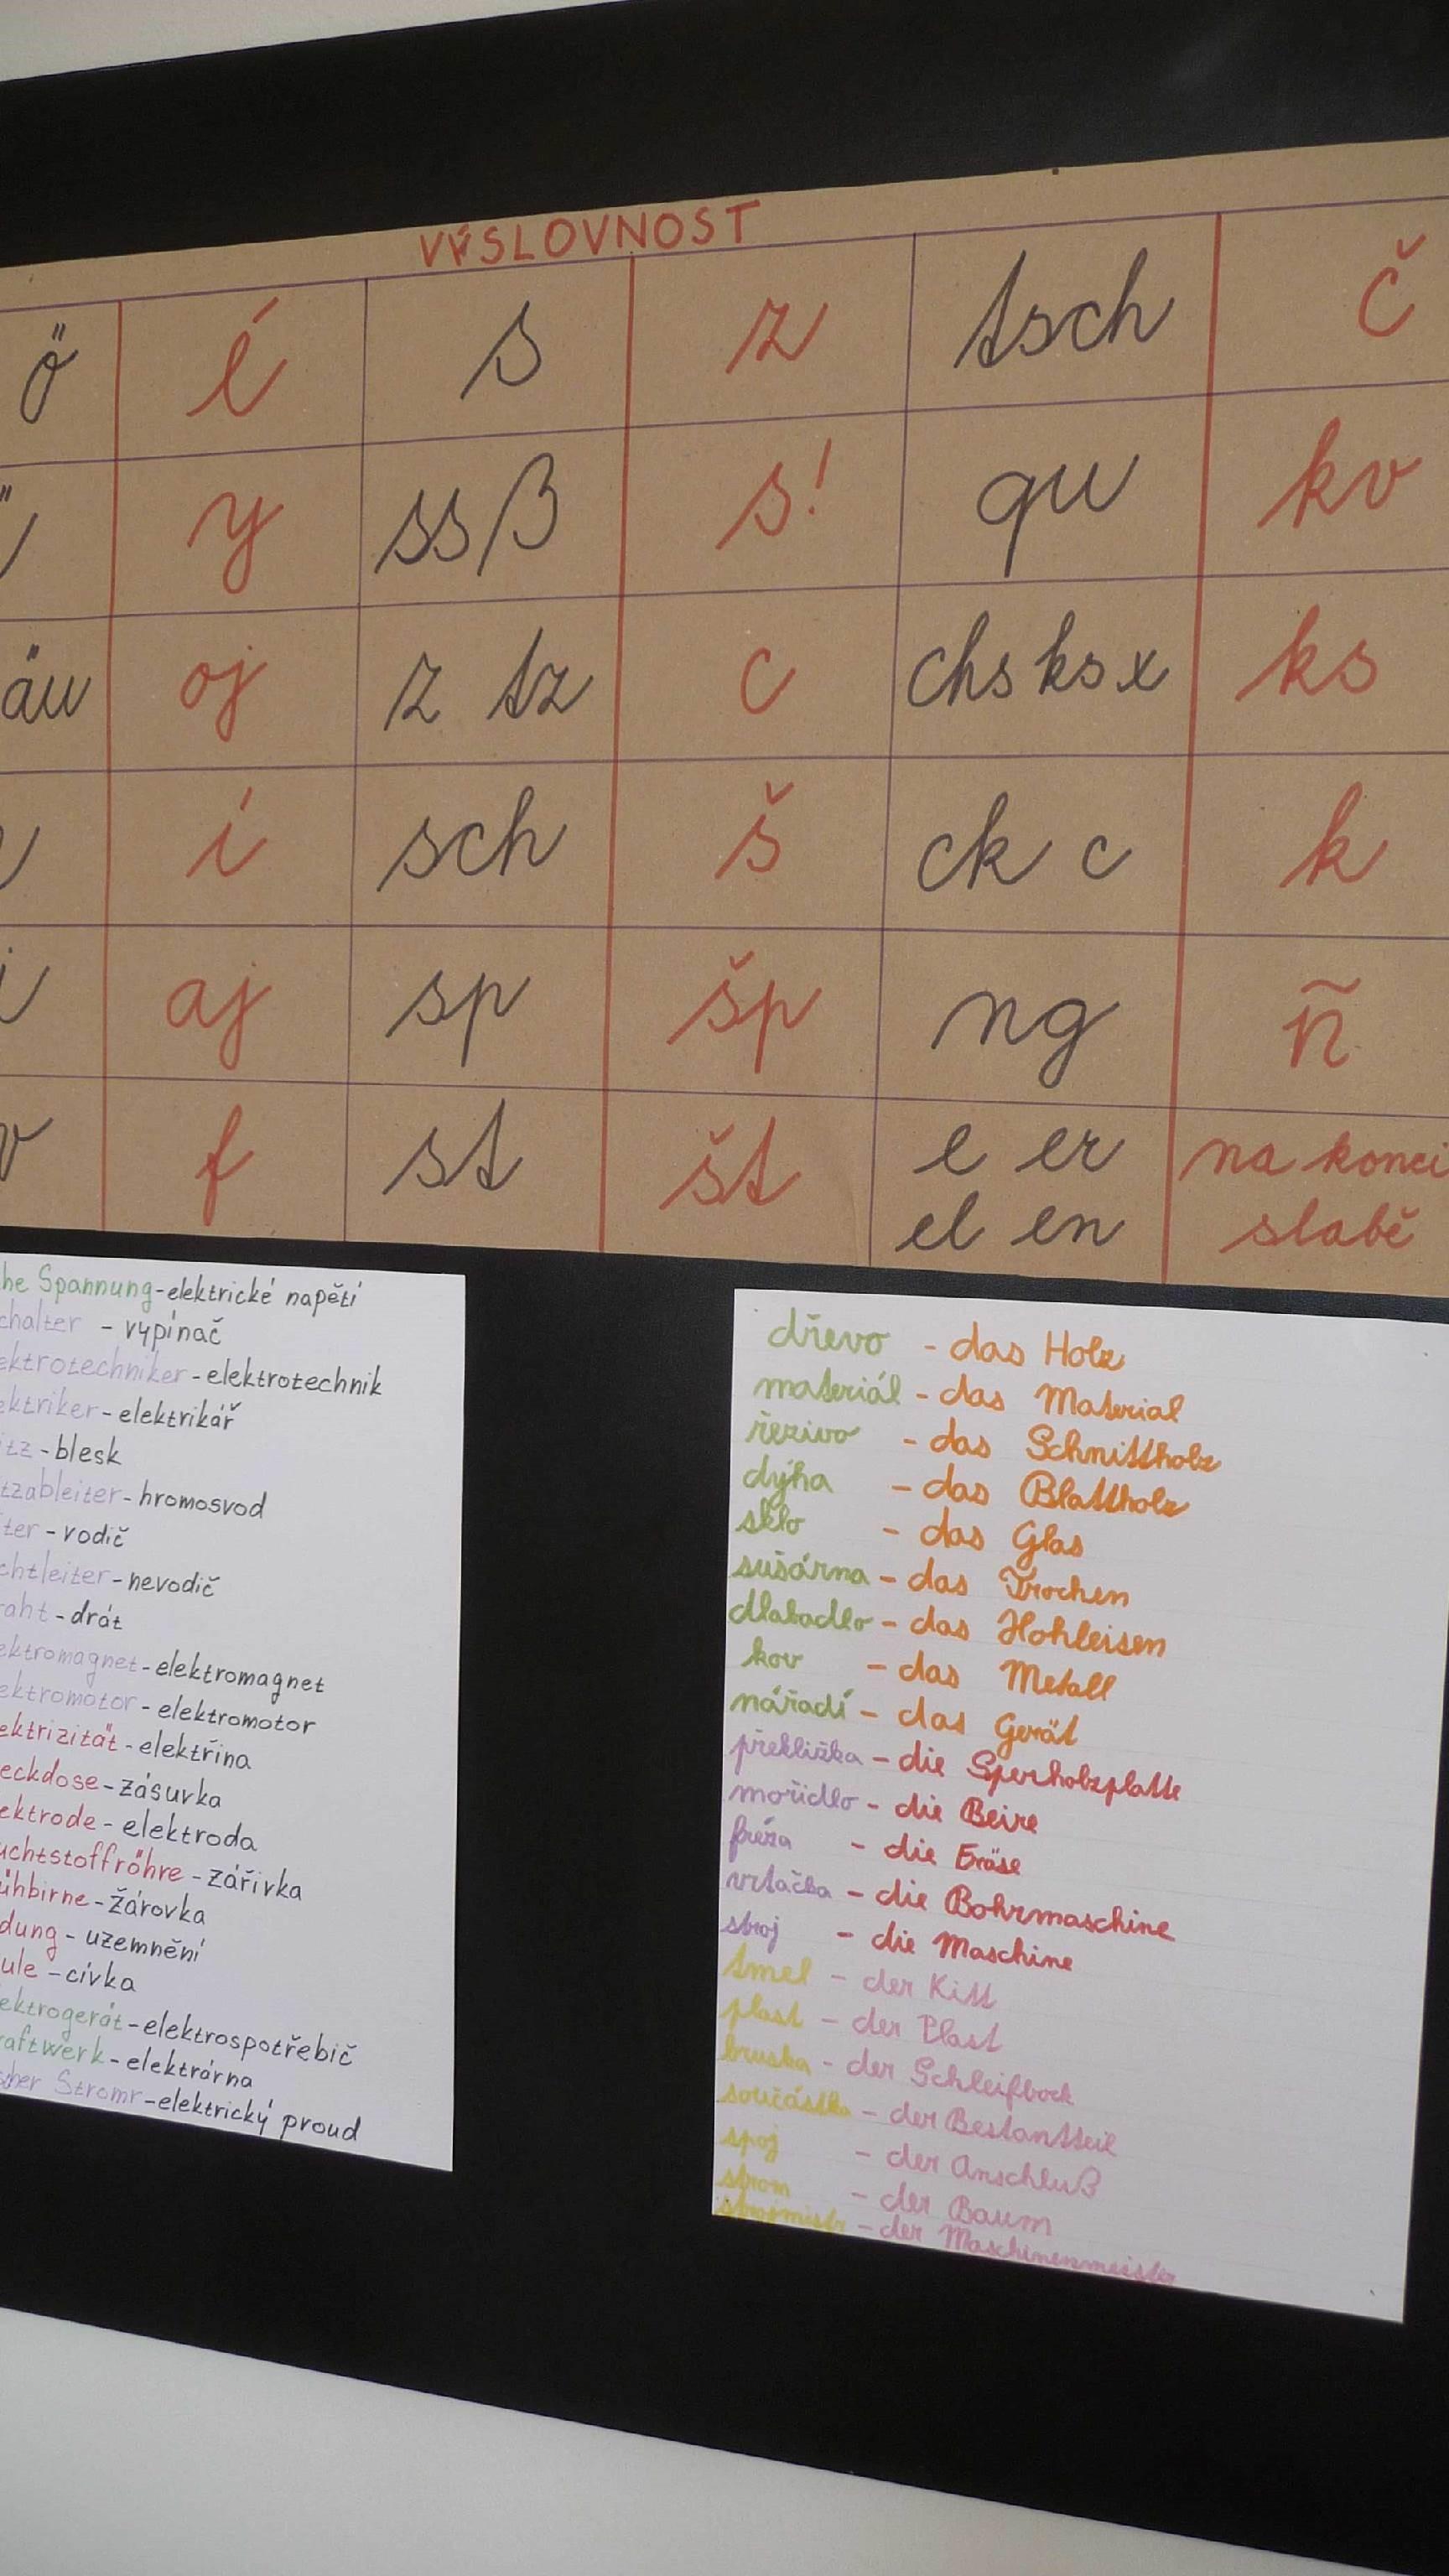 VÝSLOVNOST
ö é s z tsch č
y ss ß s! qu kv
äu oj z tz c chs ks x ks
í sch š ck c k
aj sp šp ng ñ
v f st št e er na konci
el en slabě
he Spannung - elektrické napětí
chalter - vypínač
ektrotechniker - elektrotechnik
ektriker - elektrikář
itz - blesk
tzableiter - hromosvod
iter - vodič
chtleiter - nevodič
raht - drát
ektromagnet - elektromagnet
ektromotor - elektromotor
ektrizität - elektřina
eckdose - zásuvka
ektrode - elektroda
uchtstoffröhre - zářivka
ühbirne - žárovka
dung - uzemnění
ule - cívka
ektrogerät - elektrospotřebič
raftwerk - elektrárna
scher Stromr - elektrický proud
dřevo - das Holz
materiál - das Material
řezivo - das Schnittholz
dýha - das Blattholz
sklo - das Glas
sušárna - das Trochen
dlabadlo - das Hohleisen
kov - das Metall
nářadí - das Gerät
překližka - die Sperholzplatte
mořidlo - die Beire
fréza - die Fräse
vrtačka - die Bohrmaschine
stroj - die Maschine
tmel - der Kitt
plast - der Plast
bruska - der Schleifbock
součástka - der Bestantteil
spoj - der Anschluß
strom - der Baum
strojmistr - der Maschinenmeister